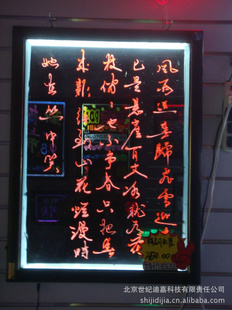 風雨送春歸飛雪迎春到
已是悬崖百丈冰犹有花
枝俏俏也不争春只把春
来報待到山花烂漫时
她在丛中笑
北京世纪迪嘉科技有限责任公司
shijidijia.com